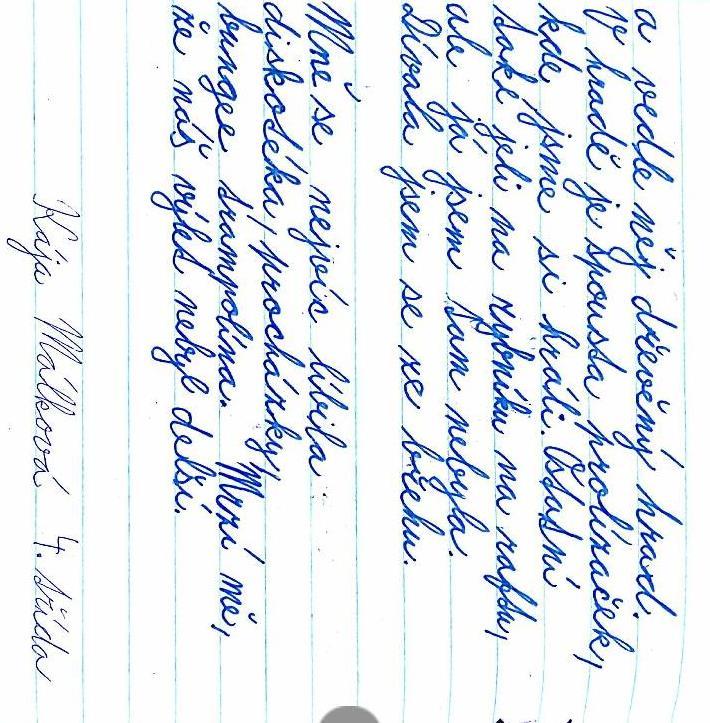 a vedle něj dřevěný hrad.
V hradě je spousta prolízaček,
kde jsme si hráli. Ostatní
také jeli na rybníku na raftu,
ale já jsem tam nebyla.
Dívala jsem se ze břehu.
Mně se nejvíc líbila
diskotéka, procházky,
bungee trampolína. Mrzí mě,
že náš výlet nebyl delší.
Kája Málková 4. třída